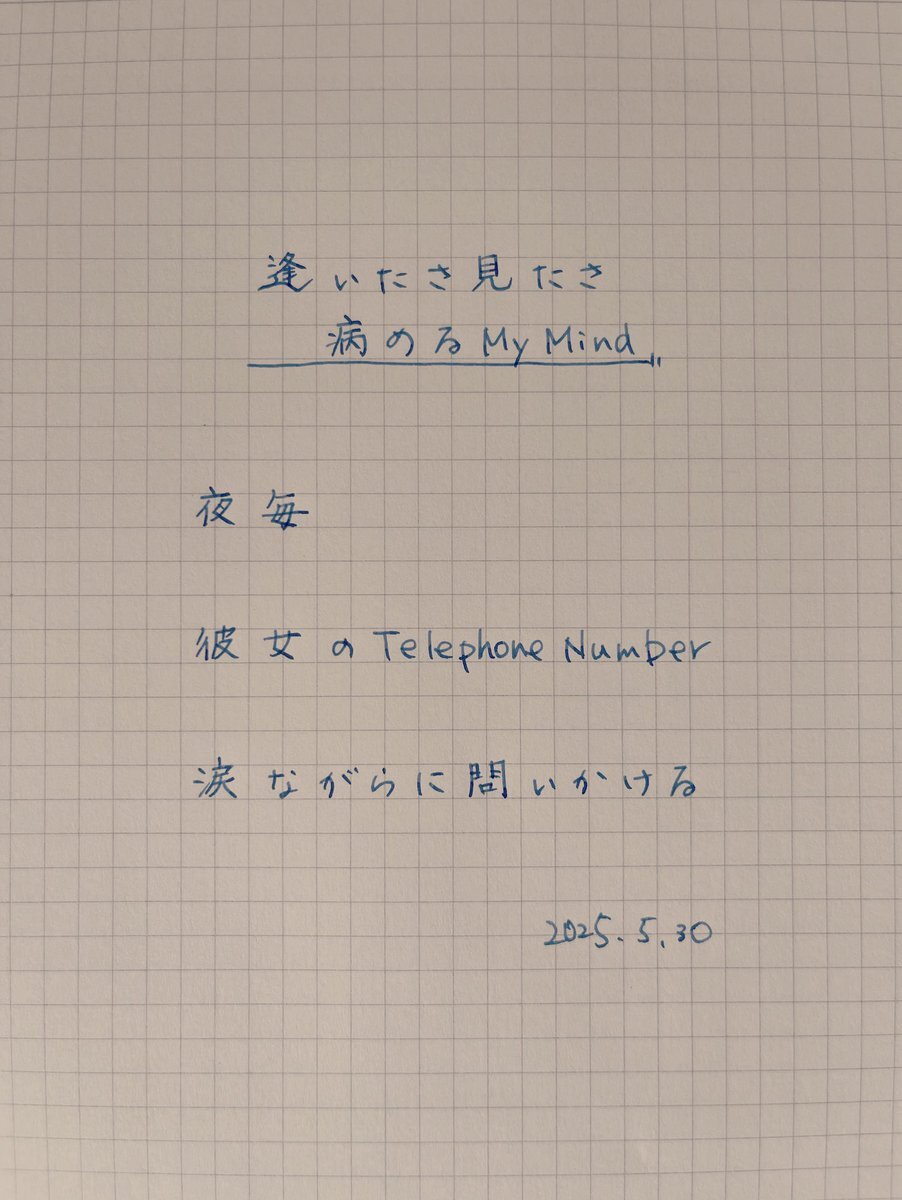 逢いたさ見たさ
病めるMy Mind
夜毎
彼女のTelephone Number
涙ながらに問いかける
2025.5.30